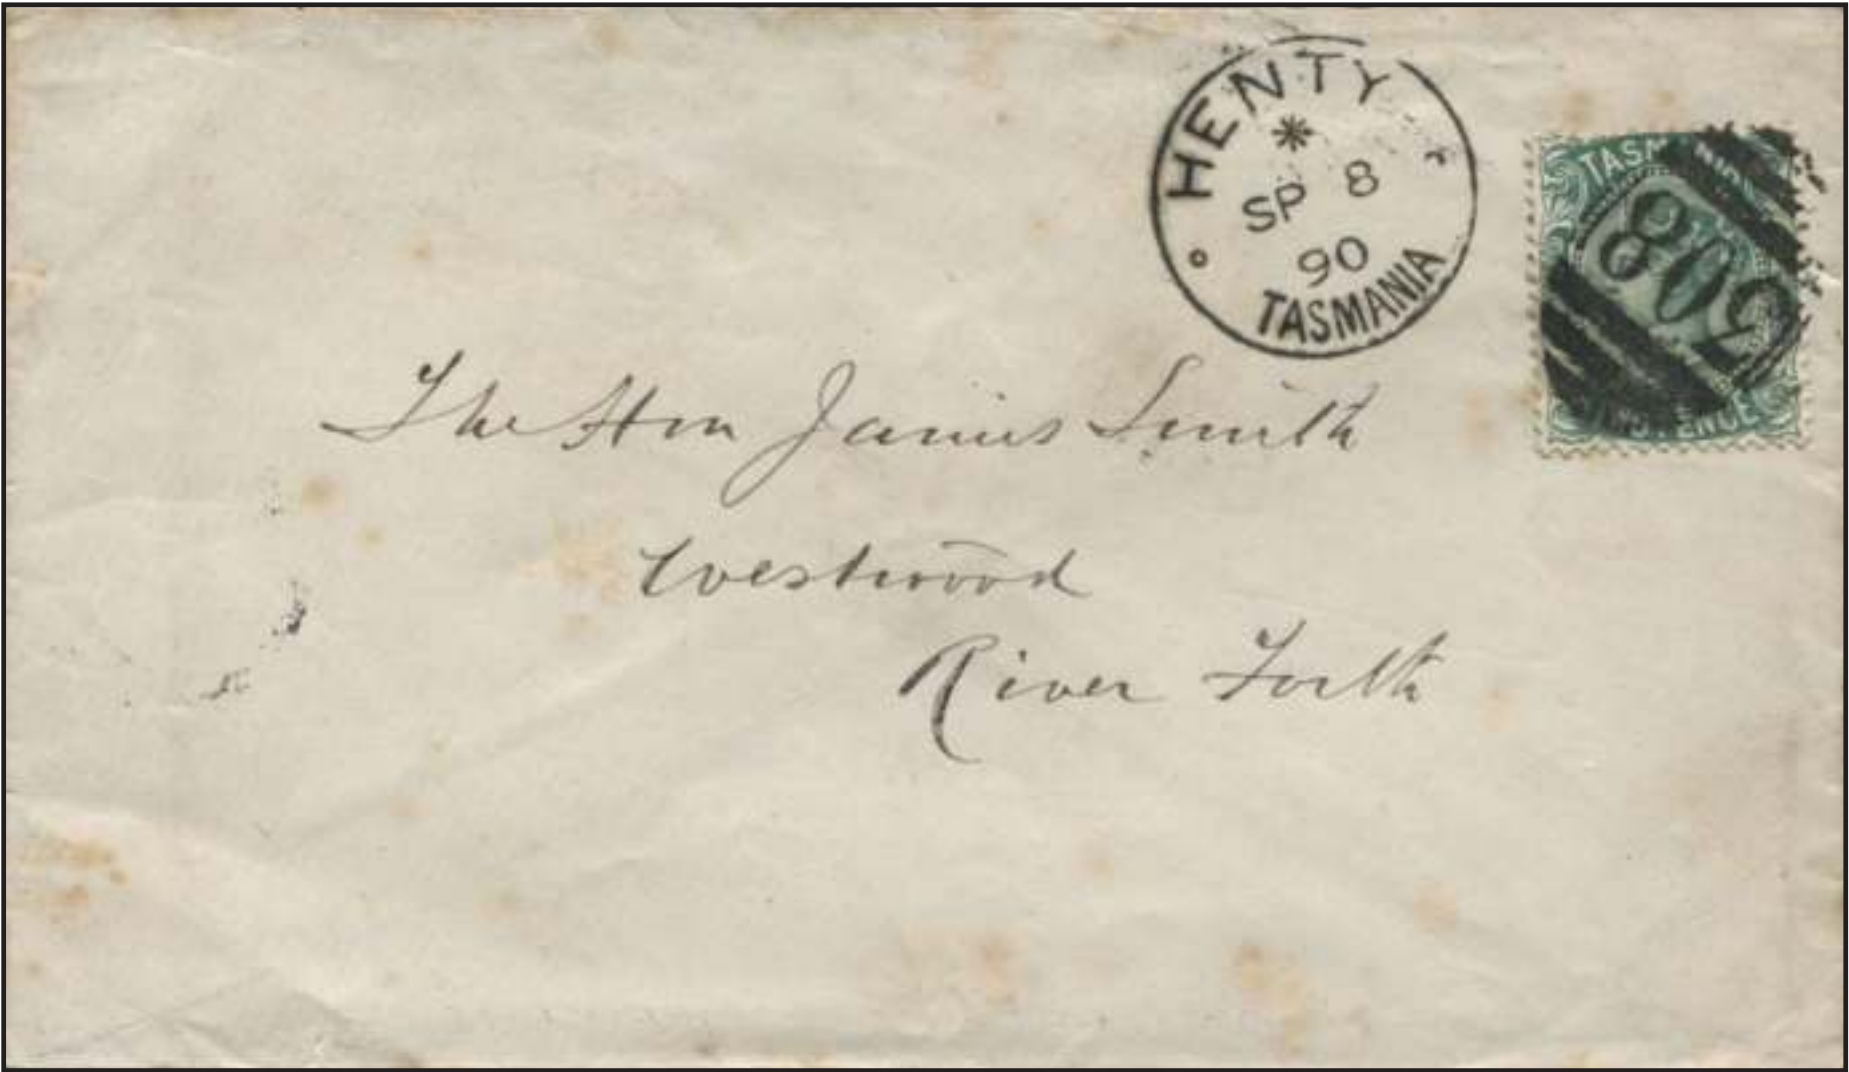 HENTY
SP 8
90
TASMANIA
TASMANIA
PENCE
The Hon James Smith
Westwood
River Forth